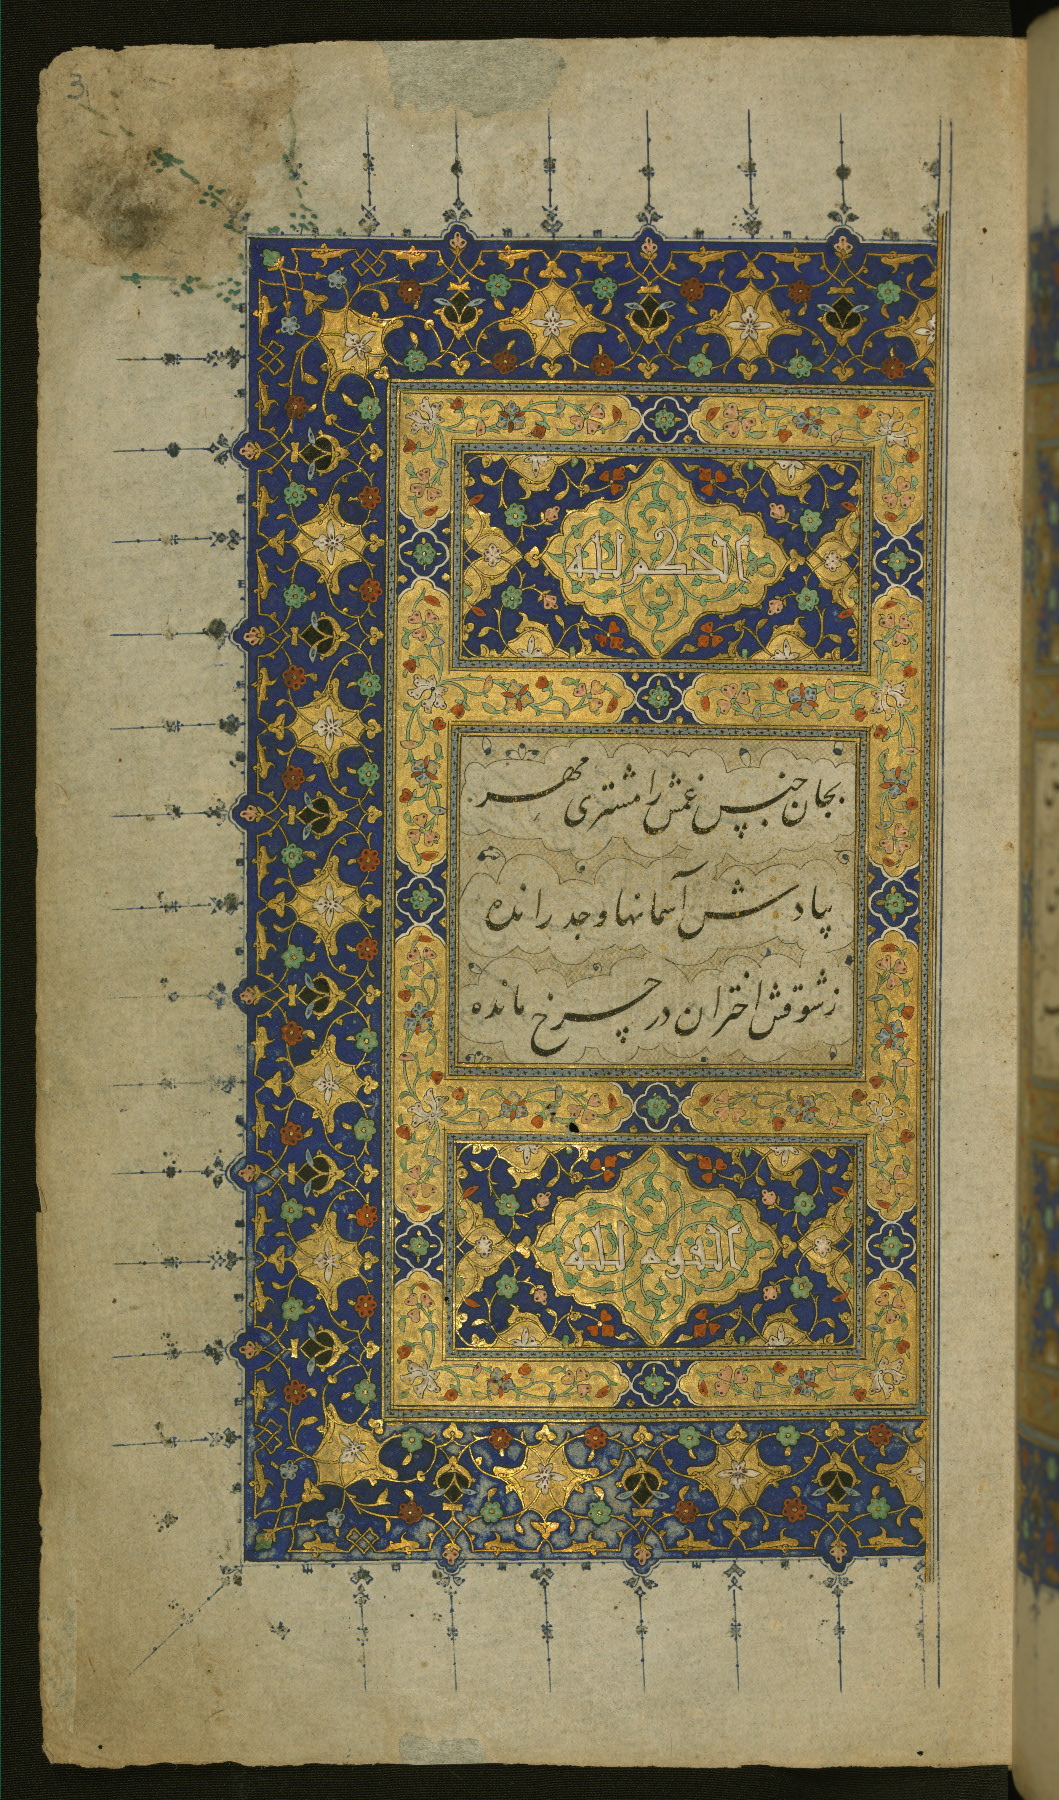 3
الحکم لله
بجان جنس غمش را مشتری مهر
بیادش آسمانها وجد رانده
زشوقش اختران در چرخ مانده
القوه لله